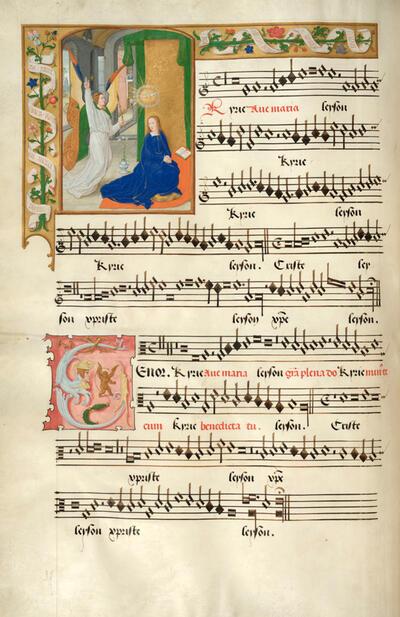 Kyrie Aue maria leyson
Kyrie
Kyrie leyson
Kyrie leyson. Criste ley
son xpriste leyson xpe leyson.
TENOR. Kyrie Aue maria leyson grā plena do Kyrie
cum Kyrie benedicta tu. leyson. Criste
xpriste leyson xpe
leyson xpriste leyson.